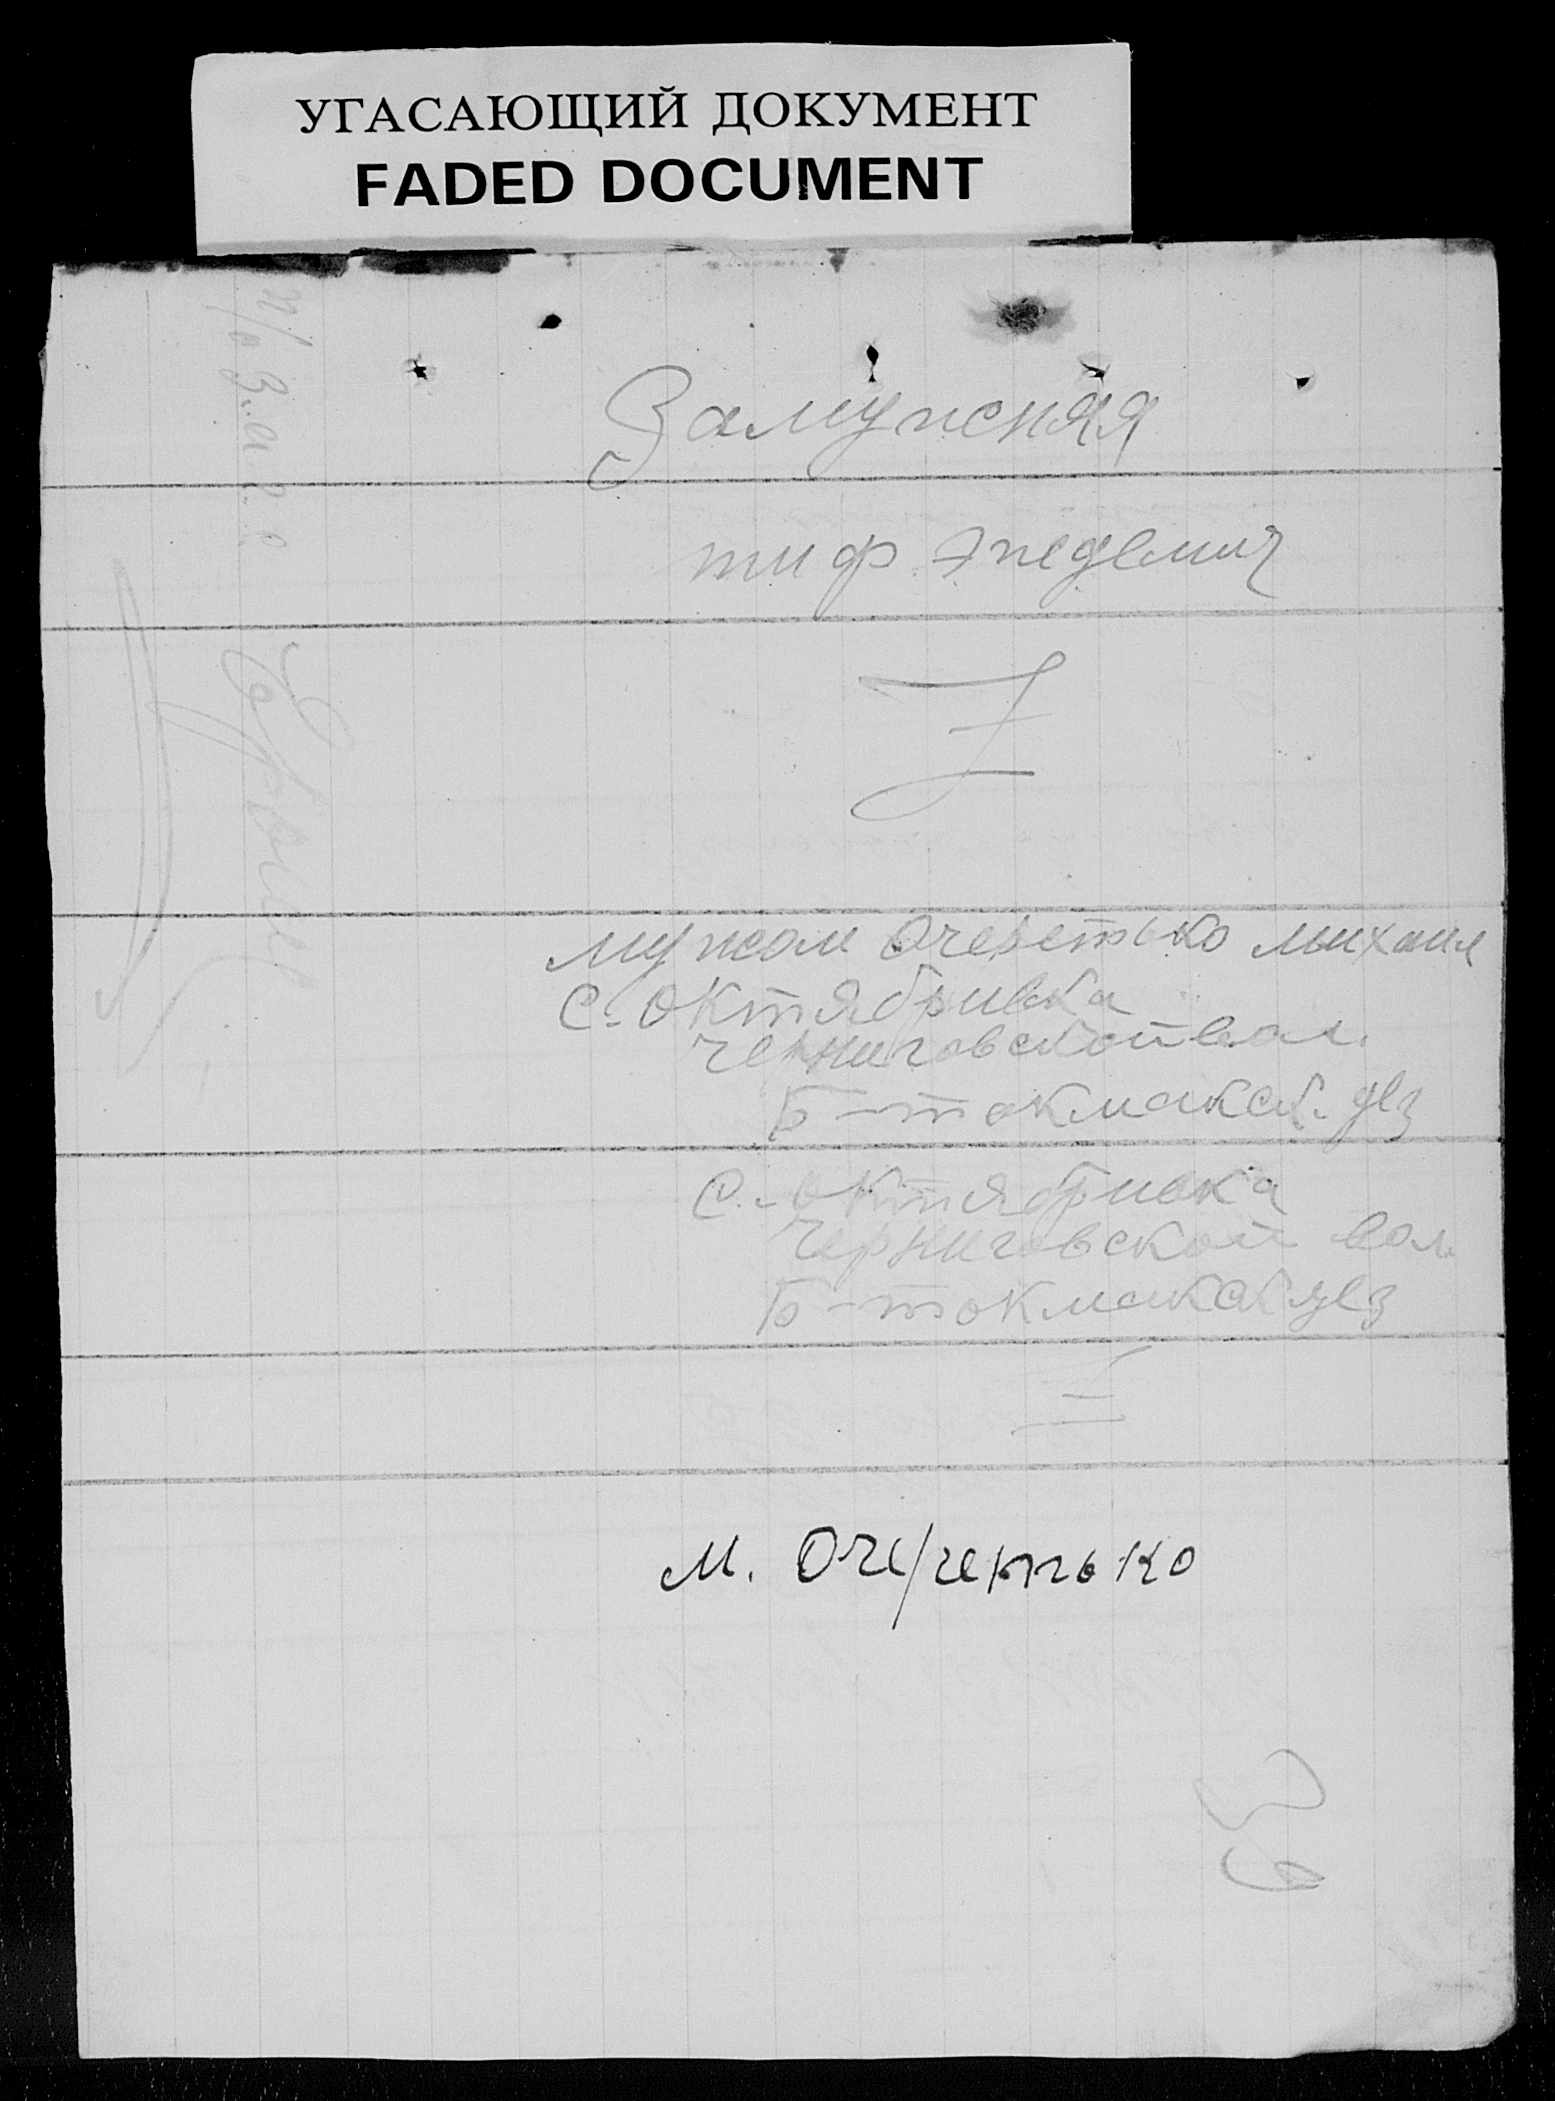 УГАСАЮЩИЙ ДОКУМЕНТ
FADED DOCUMENT
Замужняя
тиф эпедемич
мужом Очеретько михаил
с. Октябривка
черниговской вол.
Б-токмакск. уез
с. Октябривка
Черниговской вол.
Б-токмакск уез
М. Очеретько